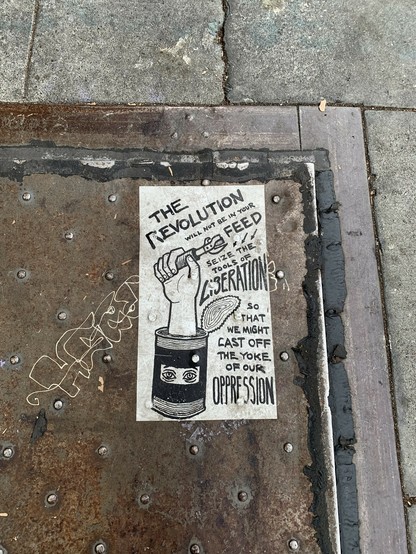 THE
REVOLUTION
WILL NOT BE IN YOUR
FEED
SEIZE THE
TOOLS OF
LIBERATION
SO
THAT
WE MIGHT
CAST OFF
THE YOKE
OF OUR
OPPRESSION